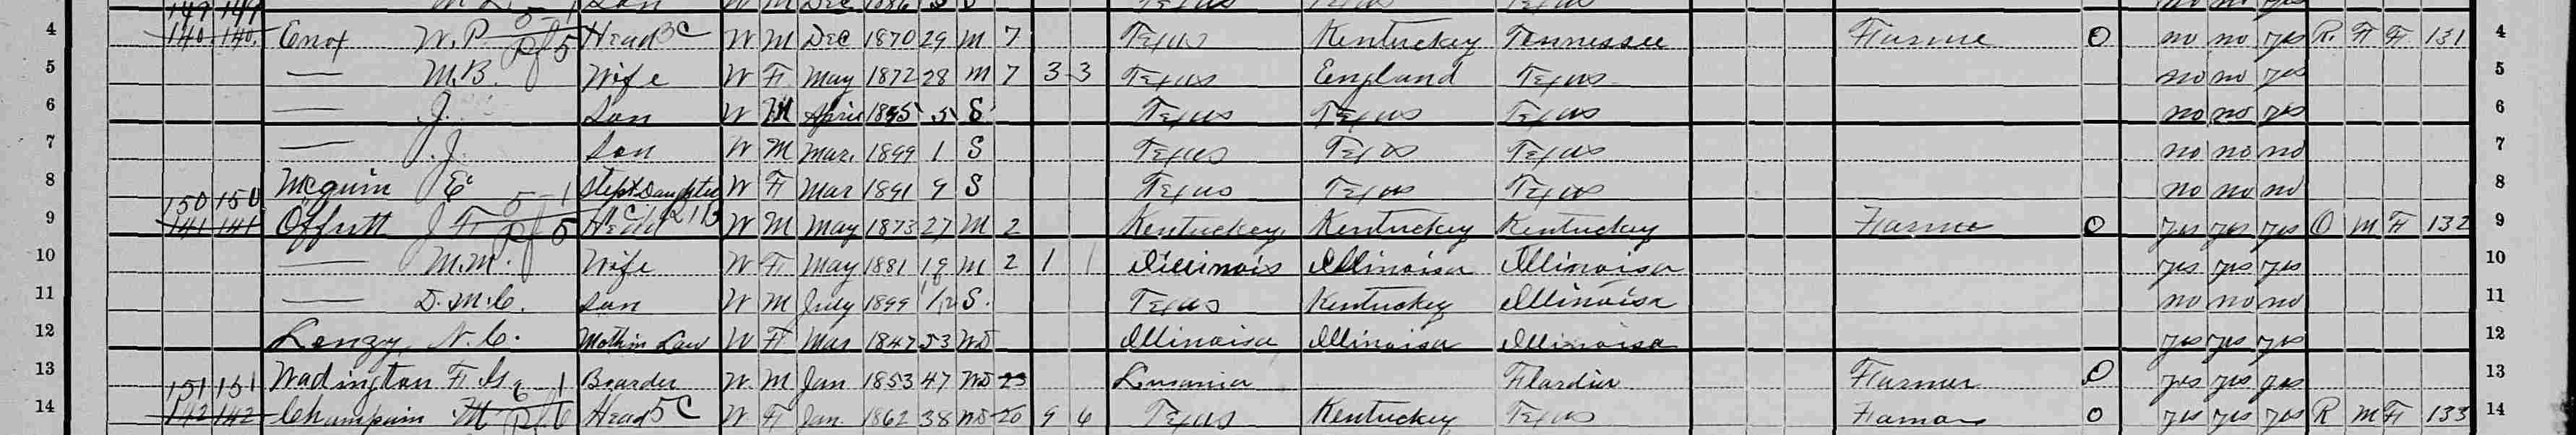 149 149 Son W M Dec 1886 S Texas Texas Texas no no yes
4 140 140 Enox W. P. Head W M Dec 1870 29 M 7 Texas Kentucky Tennessee Farme 0 no no yes R. F F 131 4
5 — M.B. Wife W F May 1872 28 M 7 3 3 Texas England Texas no no yes 5
6 — J. Son W M April 1895 5 S Texas Texas Texas no no yes 6
7 — J.J. Son W M Mar. 1899 1 S Texas Texas Texas no no no 7
8 McGuin E. Step Daughter W F Mar 1891 9 S Texas Texas Texas no no no 8
150 150
9 141 141 Offutt J F Head W M May 1873 27 M 2 Kentucky Kentucky Kentucky Farme 0 yes yes yes O M F 132 9
10 — M.M. Wife W F May 1881 19 M 2 1 1 Illinois Illinoisa Illinoisa yes yes yes 10
11 — D. Mc. Son W M July 1899 S. Texas Kentucky Illinoisa no no no 11
12 Lenzy N. C. Mothin Law W F Mar 1847 53 Wd Illinoisa Illinoisa Illinoisa yes yes yes 12
13 151 151 Wadington F. G. Boarder W. M Jan 1853 47 Wd 23 Lusania Flardia Farmer 0 yes yes yes 13
14 142 142 Champain M Head W F Jan. 1862 38 Wd 20 9 6 Texas Kentucky Texas Famar 0 yes yes yes R M F 133 14